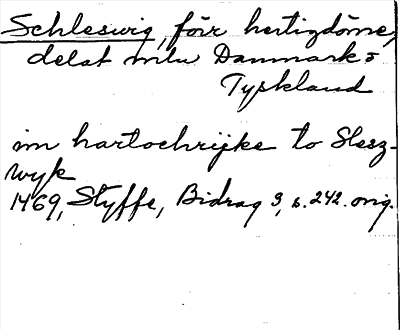 Schleswig, förr hertigdöme,
delat mlu Danmark o
Tyskland
im hartochrijke to Slesz-
wyk
1469, Styffe, Bidrag 3, s. 242. orig.